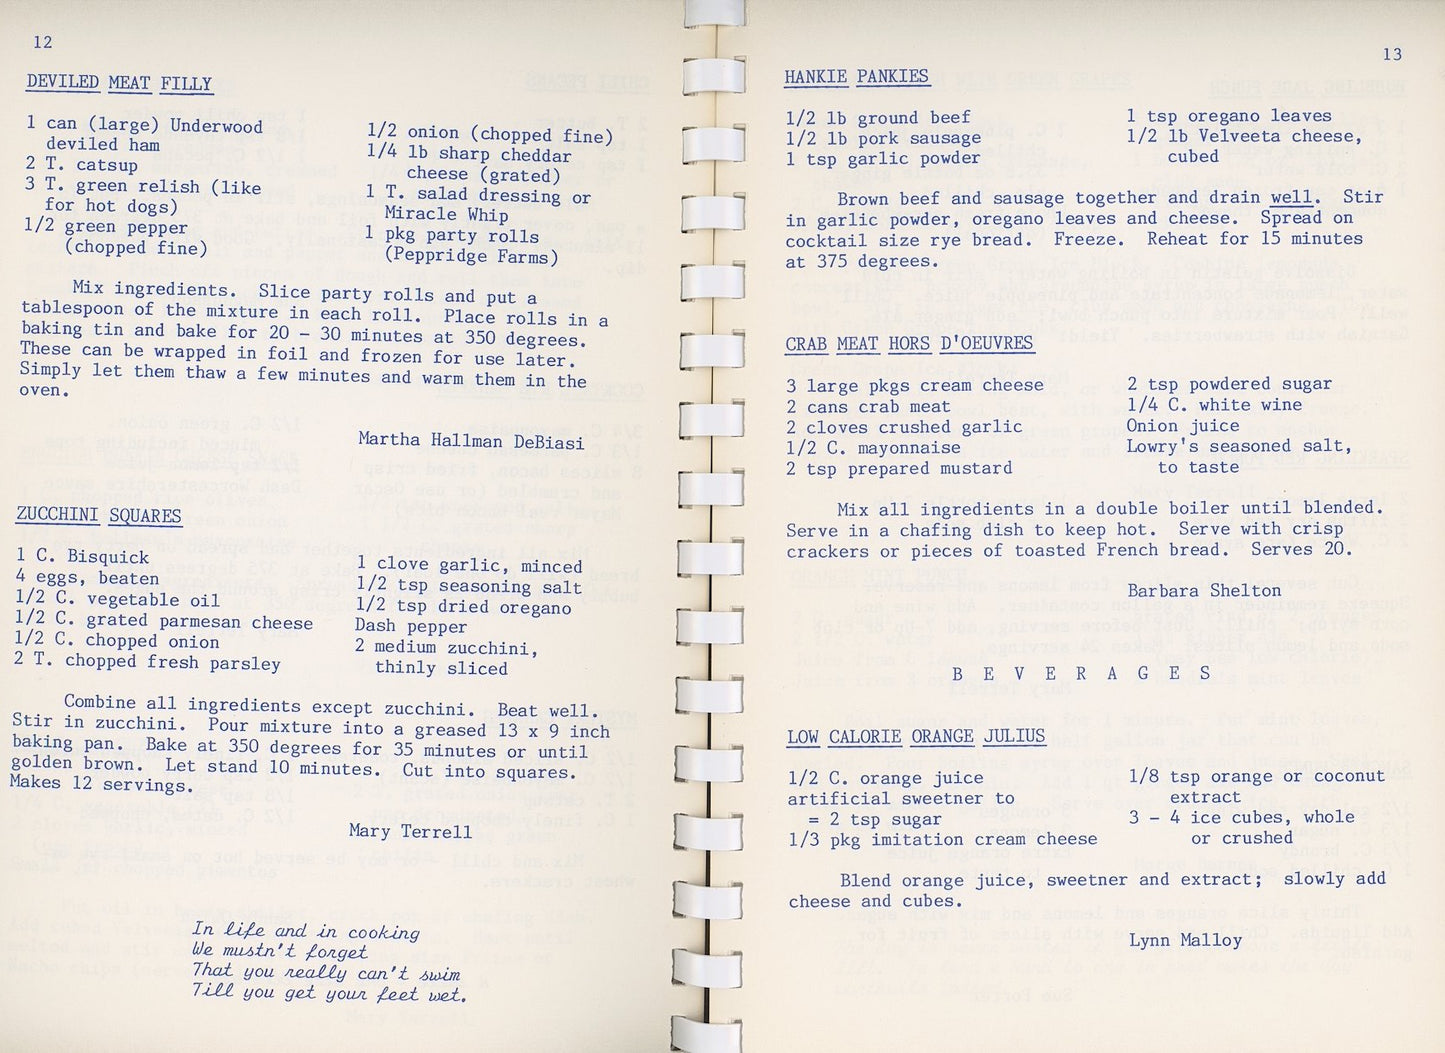 12
DEVILED MEAT FILLY
1 can (large) Underwood
deviled ham
2 T. catsup
3 T. green relish (like
for hot dogs)
1/2 green pepper
(chopped fine)
1/2 onion (chopped fine)
1/4 lb sharp cheddar
cheese (grated)
1 T. salad dressing or
Miracle Whip
1 pkg party rolls
(Peppridge Farms)
Mix ingredients. Slice party rolls and put a
tablespoon of the mixture in each roll. Place rolls in a
baking tin and bake for 20 - 30 minutes at 350 degrees.
These can be wrapped in foil and frozen for use later.
Simply let them thaw a few minutes and warm them in the
oven.
Martha Hallman DeBiasi
ZUCCHINI SQUARES
1 C. Bisquick
4 eggs, beaten
1/2 C. vegetable oil
1/2 C. grated parmesan cheese
1/2 C. chopped onion
2 T. chopped fresh parsley
1 clove garlic, minced
1/2 tsp seasoning salt
1/2 tsp dried oregano
Dash pepper
2 medium zucchini,
thinly sliced
Combine all ingredients except zucchini. Beat well.
Stir in zucchini. Pour mixture into a greased 13 x 9 inch
baking pan. Bake at 350 degrees for 35 minutes or until
golden brown. Let stand 10 minutes. Cut into squares.
Makes 12 servings.
Mary Terrell
In life and in cooking
We mustn't forget
That you really can't swim
Till you get your feet wet.
13
HANKIE PANKIES
1/2 lb ground beef
1/2 lb pork sausage
1 tsp garlic powder
1 tsp oregano leaves
1/2 lb Velveeta cheese,
cubed
Brown beef and sausage together and drain well. Stir
in garlic powder, oregano leaves and cheese. Spread on
cocktail size rye bread. Freeze. Reheat for 15 minutes
at 375 degrees.
CRAB MEAT HORS D'OEUVRES
3 large pkgs cream cheese
2 cans crab meat
2 cloves crushed garlic
1/2 C. mayonnaise
2 tsp prepared mustard
2 tsp powdered sugar
1/4 C. white wine
Onion juice
Lowry's seasoned salt,
to taste
Mix all ingredients in a double boiler until blended.
Serve in a chafing dish to keep hot. Serve with crisp
crackers or pieces of toasted French bread. Serves 20.
Barbara Shelton
B E V E R A G E S
LOW CALORIE ORANGE JULIUS
1/2 C. orange juice
artificial sweetner to
= 2 tsp sugar
1/3 pkg imitation cream cheese
1/8 tsp orange or coconut
extract
3 - 4 ice cubes, whole
or crushed
Blend orange juice, sweetner and extract; slowly add
cheese and cubes.
Lynn Malloy